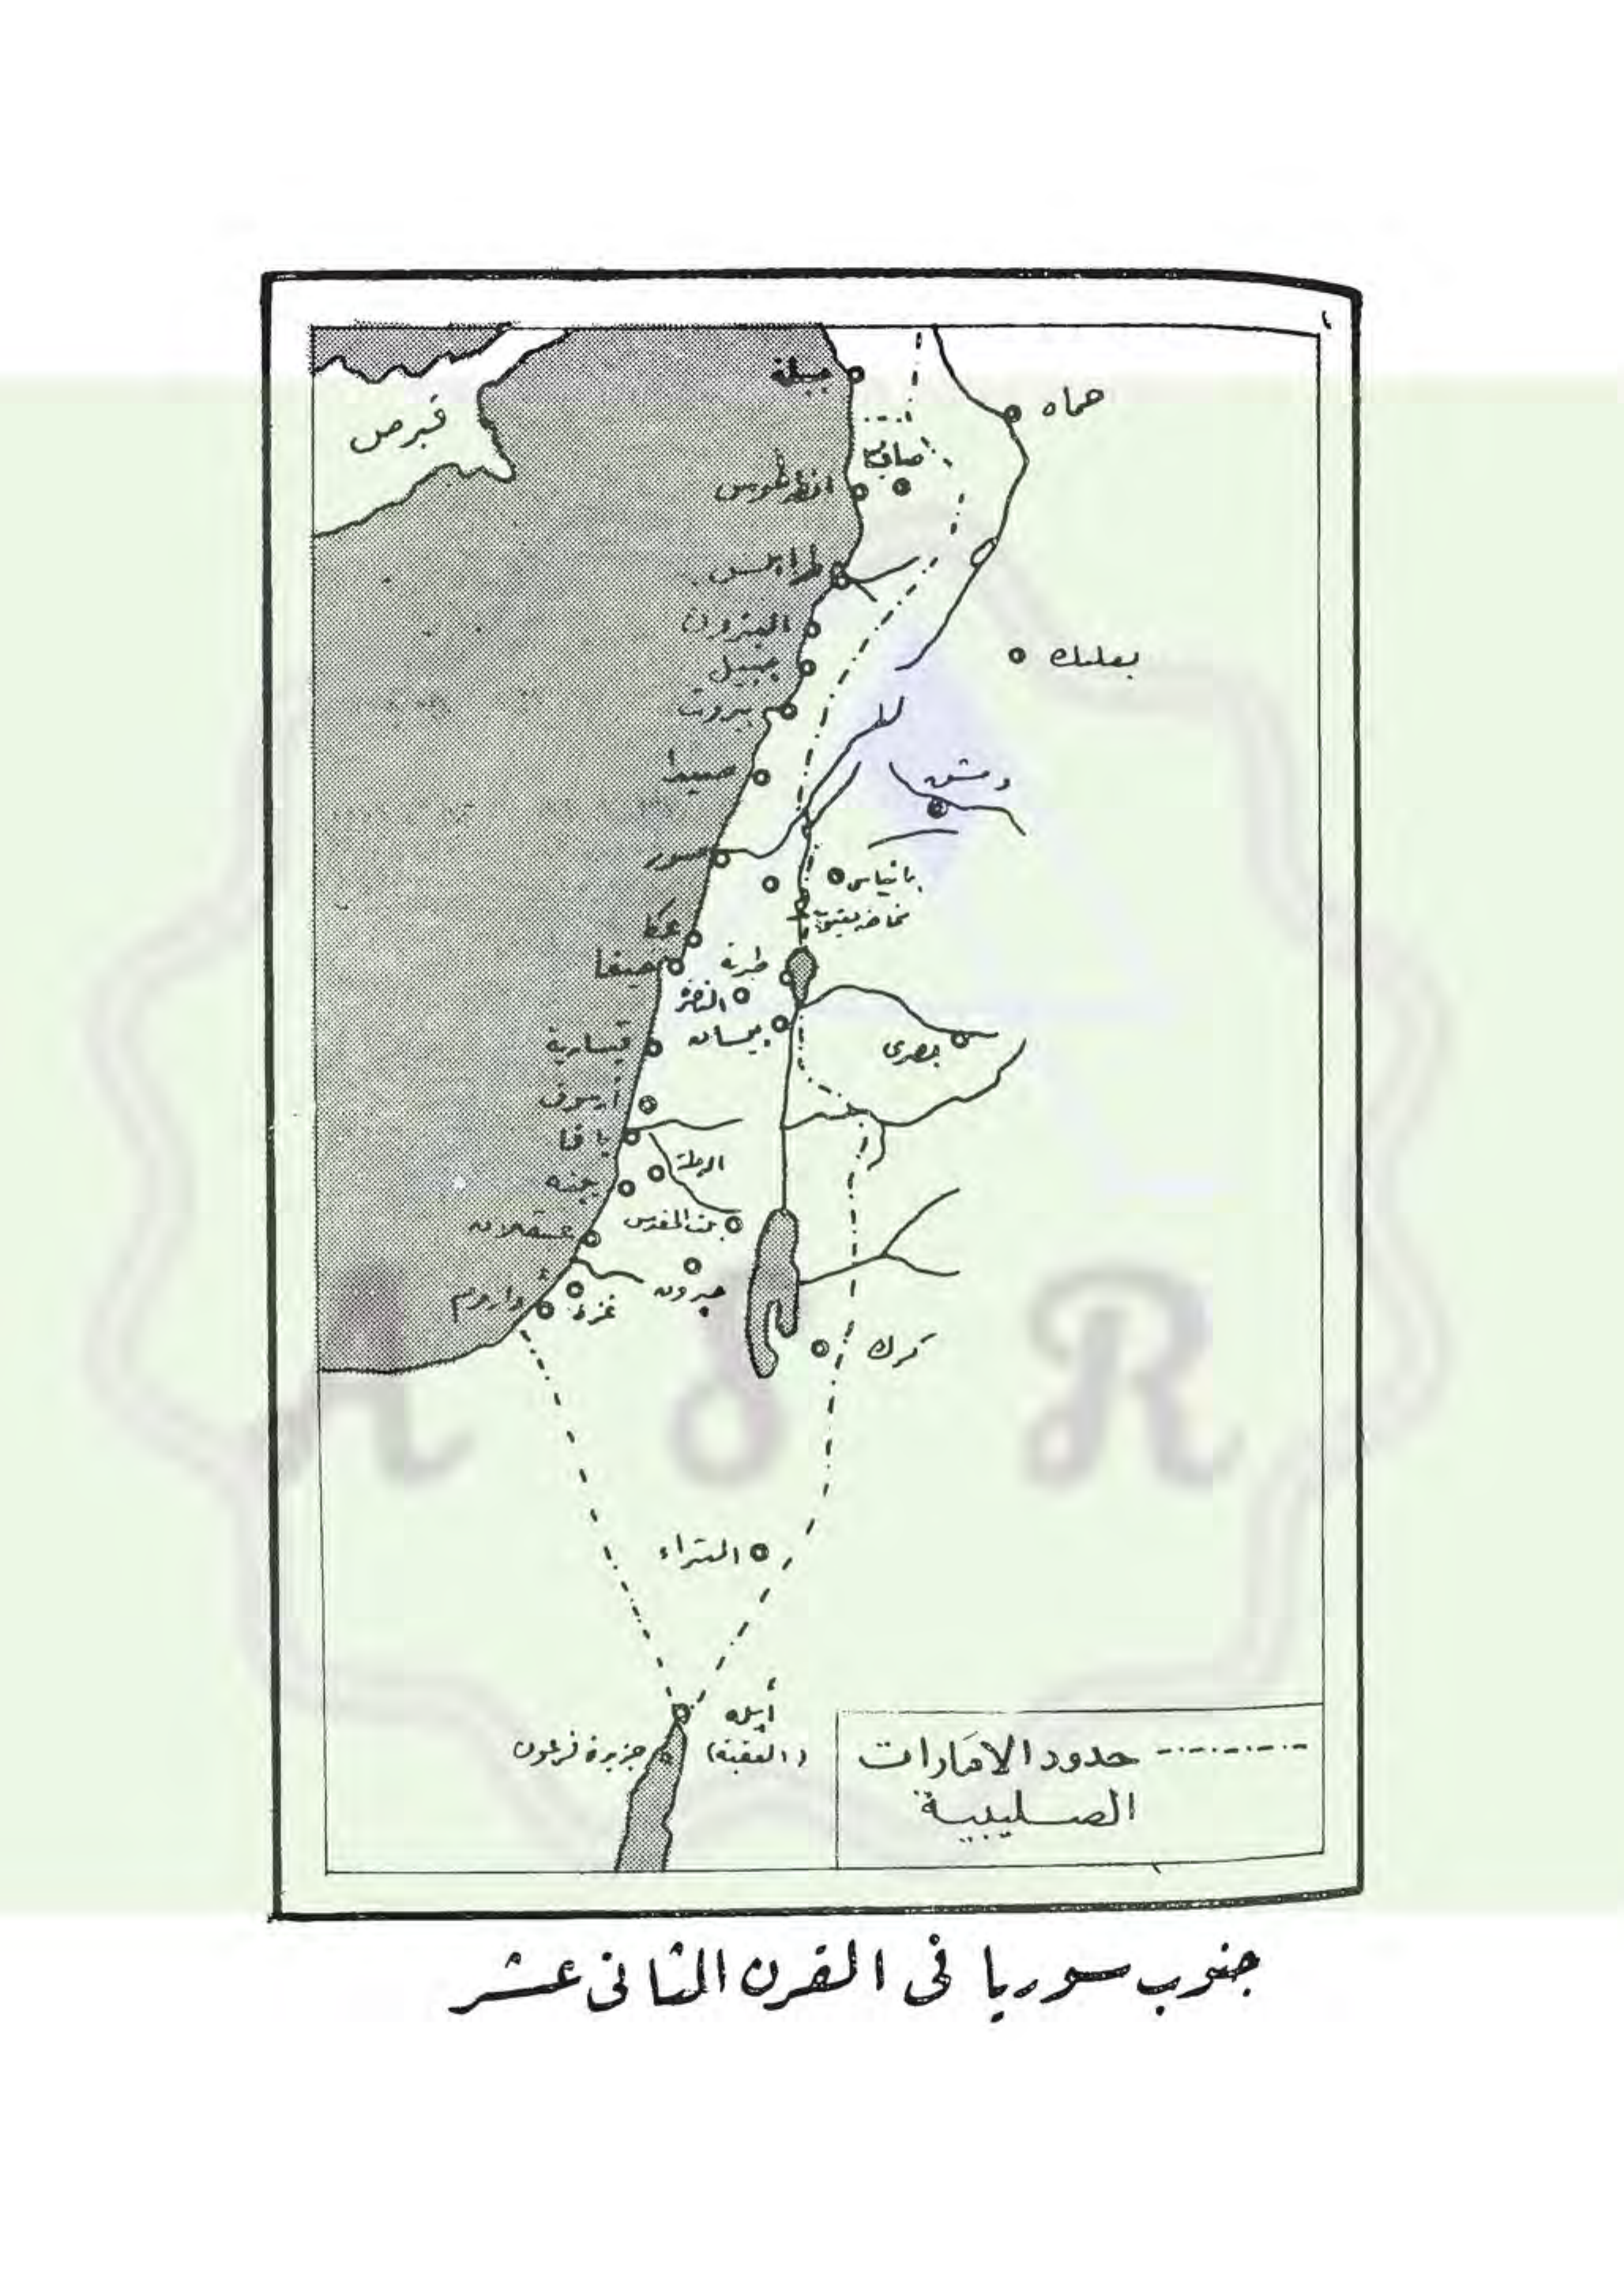 جبلة
حماه
قبرص
انطرطوس
طرابلس
البترون
جبيل
بعلبك
بيروت
صيدا
دمشق
صور
بانياس
مخاضة يعقوب
عكا
حيفا
طبرية
الناصرة
بيسان
قيسارية
بصرى
أرسوف
يافا
الرملة
يبنه
بيت المقدس
عسقلان
حبرون
غزة
داروم
كرك
البتراء
أيله
(العقبة)
جزيرة فرعون
حدود الامارات
الصليبية
جنوب سوريا فى القرن الثانى عشر
A R